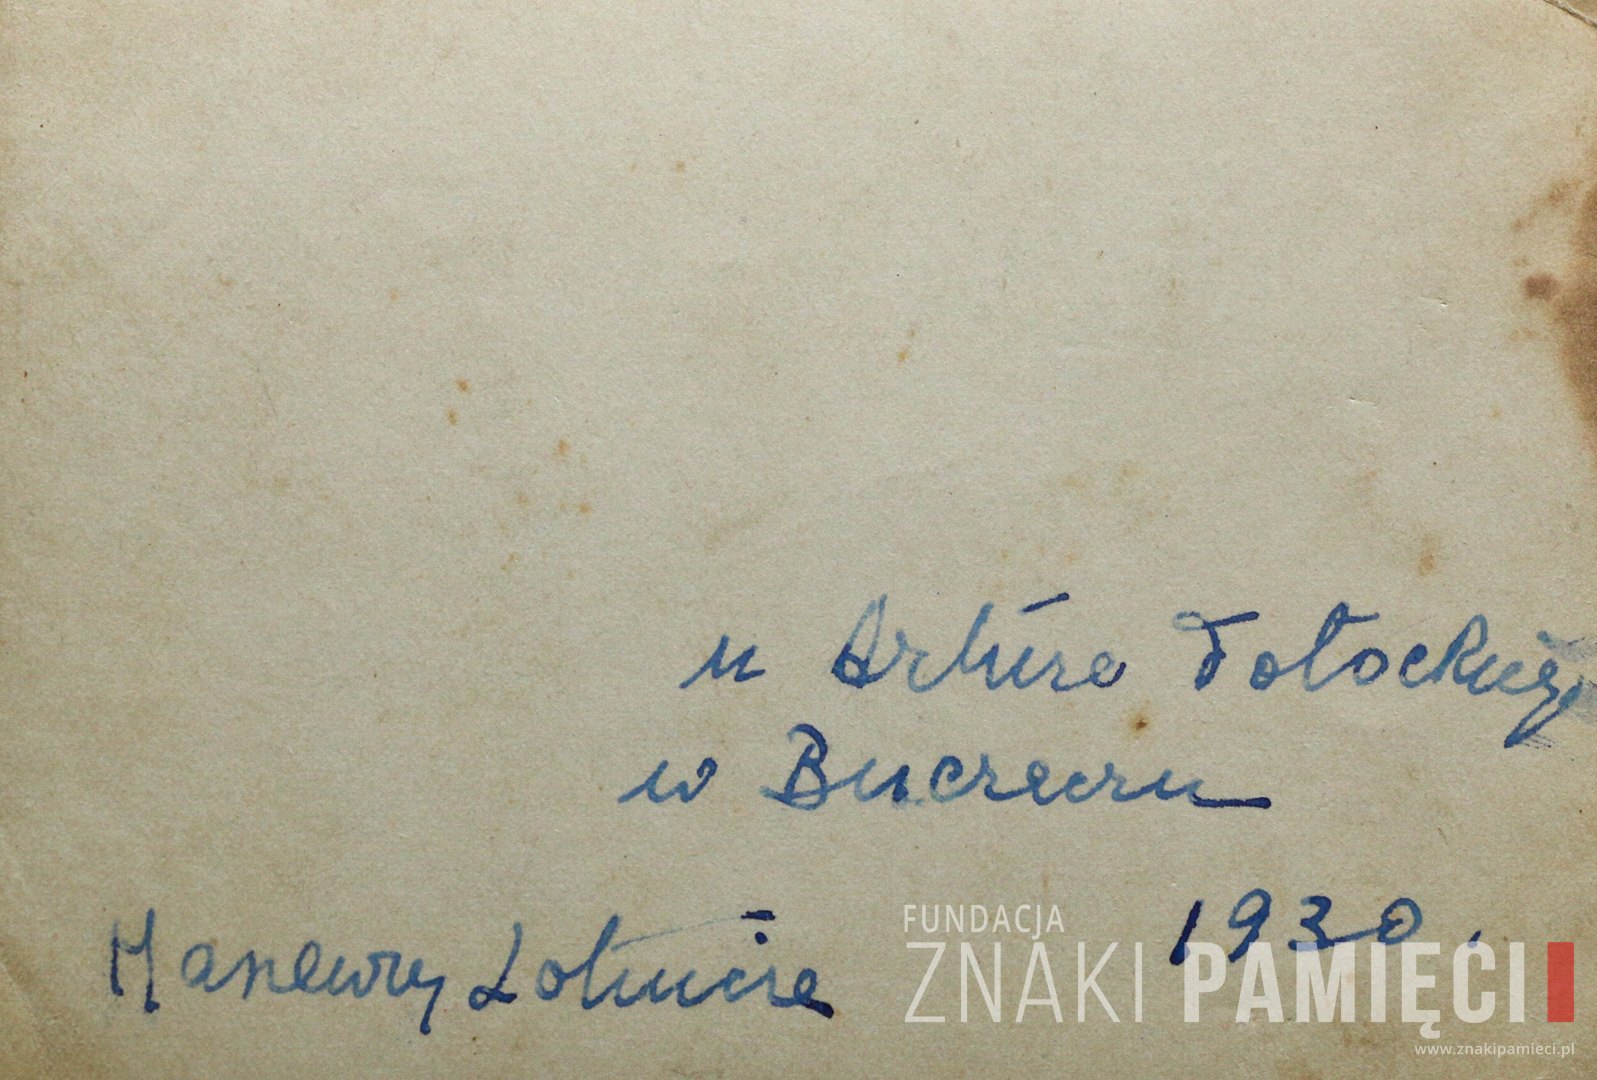 u Artura Potockiego
w Buczaczu
1930.
Manewry Lotnicze
FUNDACJA
ZNAKI PAMIĘCI
www.znakipamieci.pl